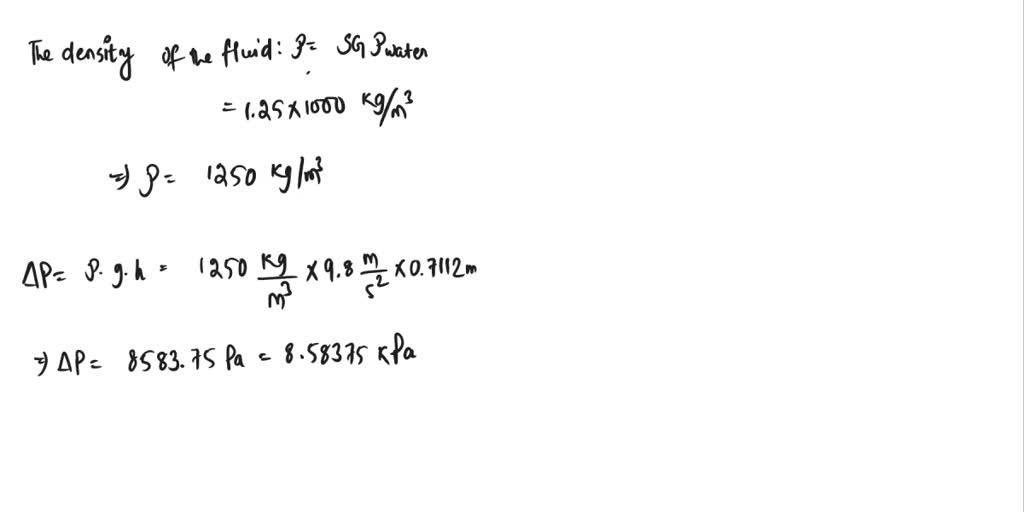 The density of the fluid: ρ= SG ρwater
= 1.25 × 1000 kg/m³
⇒ ρ= 1250 kg/m³
ΔP= ρ. g. h = 1250 kg/m³ × 9.8 m/s² × 0.7112 m
⇒ ΔP= 8583.75 Pa = 8.58375 kPa